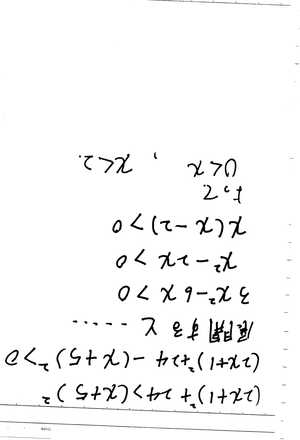 (2x+1)²+24>(x+5)²
(2x+1)²+24-(x+5)²>0
展開すると.....
3x²-6x>0
x²-2x>0
x(x-2)>0
よって
0<x , x<2.